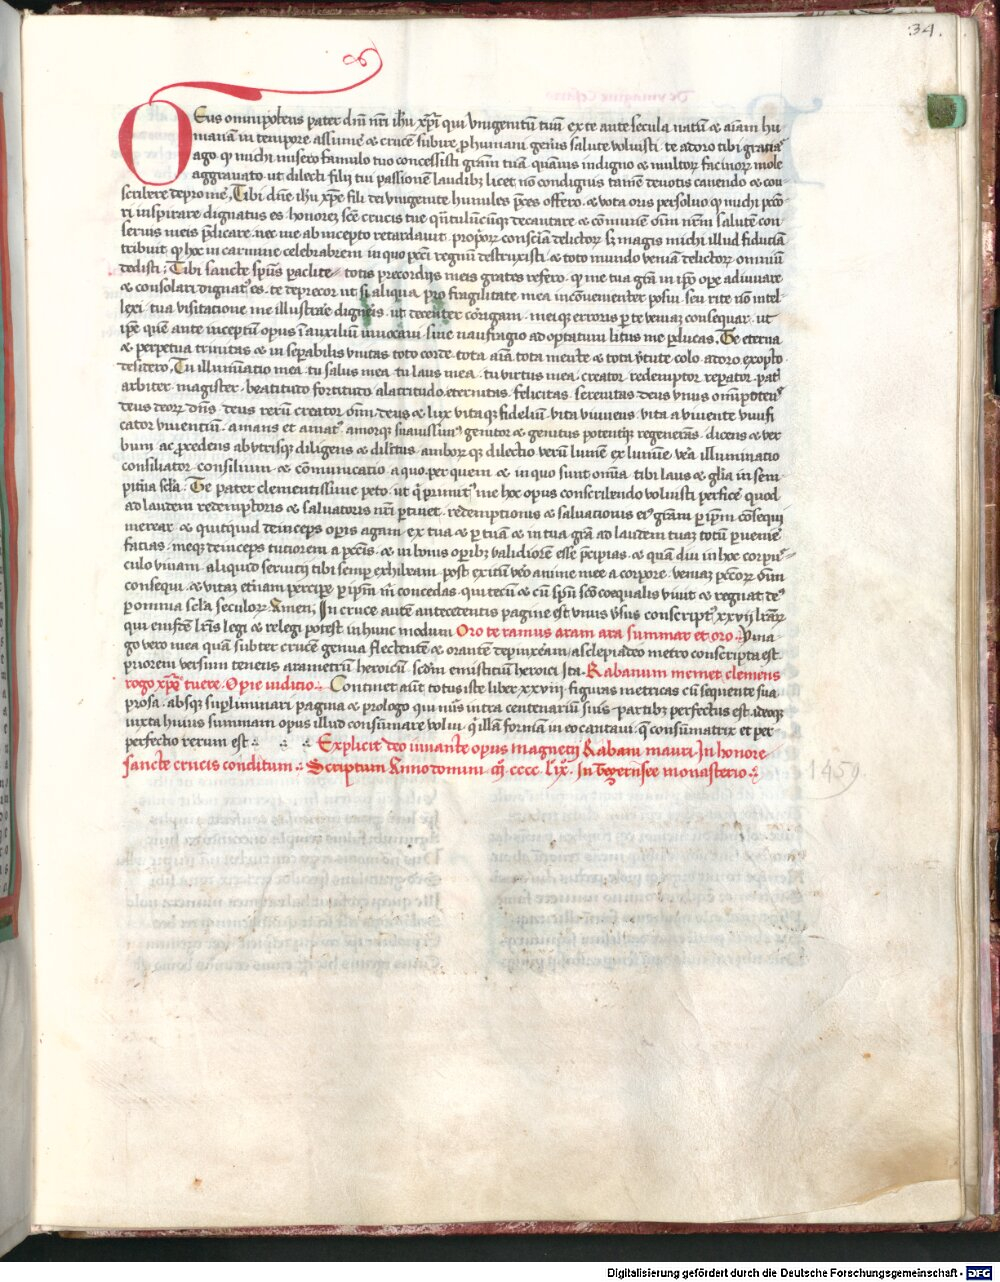 34.
Deus omnipotens pater dni nri ihu xpi qui vnigenitu tuu ex te ante secula natu & aiam hu
mana in tempore assume & cruce subire p humani genis salute voluisti te adoro tibi gratias
ago qz michi misero famulo tuo concessisti gram tua quauis indigno & multoz facinoz mole
aggrauato ut dilecti filij tui passione laudibz licet no condignis tame deuotis canendo & con
scribere depromē. Tibi dne ihu xpe fili dei vnigenite humiles pces offero & vota oris persoluo qz michi pcco
ri inspirare dignatus es honorez sce crucis tue decantare & comune oim salute con
seruis meis pdicare nec me ab incepto retardauit proprioz conscia delictoz sz magis michi illud fiducia
tribuit qz hoc in carmine celebrabrem in quo pcci regnu destruxisti & toto mundo venia delictoz omniu
dedisti. Tibi sancte spus paclite totis precordijs meis grates refero qz me tua gra in ipo ope adiuuare
& consolari dignatus es te deprecor ut si aliqua pro fragilitate mea inconuenienter posui seu rite no intel-
lexi tua visitatione me illustrare digneris ut decenter corrigam meisqz erroris p te veniaz consequar ut
ipe que ante inceptu opus i auxiliu inuocaui sine naufragio ad optatum litus me pducas. Te eterna
& perpetua trinitas & in sepabilis vnitas toto corde tota aia tota mente & tota vtute colo adoro exopto
desidero. Tu illuminatio mea tu salus mea tu laus mea tu virtus mea creator redemptor repator pat
arbiter magister beatitudo fortitudo alacritudo eternitas felicitas serenitas deus vnus omipotens
deus deoz dns deus reru creator oim deus & lux vitaqz fideliu vita viuens vita a viuente viuifi
cator viuentiu amans et amatus amorqz suauissimus genitor & genitus potenterqz regenerans dicens & ver
bum ac procedens ab vtrisqz diligens & dilitus amboz qz dilectio veru lumē ex lumine vera illuminatio
consiliator consilium & comunicatio a quo per quem & in quo sunt omia tibi laus & glia in sem
piterna scla. Te pater clementissime peto ut q primitus me hoc opus conscribendo voluisti perficē quod
ad laudem redemptoris & saluatoris nri ptinet redemptionis & saluationis eius gram p ipm consequi
merear & quitquid deinceps opis agam ex tua & p tua & in tua gra ad laudem tuaz totu puenire
facias meqz deinceps tutiorem a pccis & in bonis opibz validiore esse pcipias & quam diu in hoc corpus-
culo viuam aliquod seruitij tibi semper exhibeam post exitu vero anime mee a corpore veniaz pccoz oim
consequi & vitaz etiam percipe p ipm m concedas qui tecu & cu spu sco coequalis viuit & regnat ds
p omnia scla seculoz Amen. In cruce aute antecedentis pagine est vnus vsus conscriptus xxvij lraz
qui eisdem lris legi & relegi potest in hunc modum Oro te ramus aram ara sumar et oro. Ymago
go vero mea quam subter crucē genua flectentē & orantē depinxeram asclepiadeo metro conscripta est
priorem versum tenens a rametrum heroicu scdm emistitiu heroici Ita. Rabanum memet clemens
rogo xpe tuere O pie iudicio. Continet aute totus iste liber xxviij figuras metricas cu sequente sua
prosa absqz supliminari pagina & prologo qui nus intra centenariu suis partibz perfectus est ideoqz
iuxta huius summam opus illud consumare volui q illa formam in eo cantaui q consumatrix et per
perfectio rerum est
Explicit deo iuuante opus magnetij Rabani mauri In honore
sancte crucis conditum. Scriptum Anno domini M cccc lix In Tegernsee monasterio
1459.
Digitalisierung gefördert durch die Deutsche Forschungsgemeinschaft - DFG